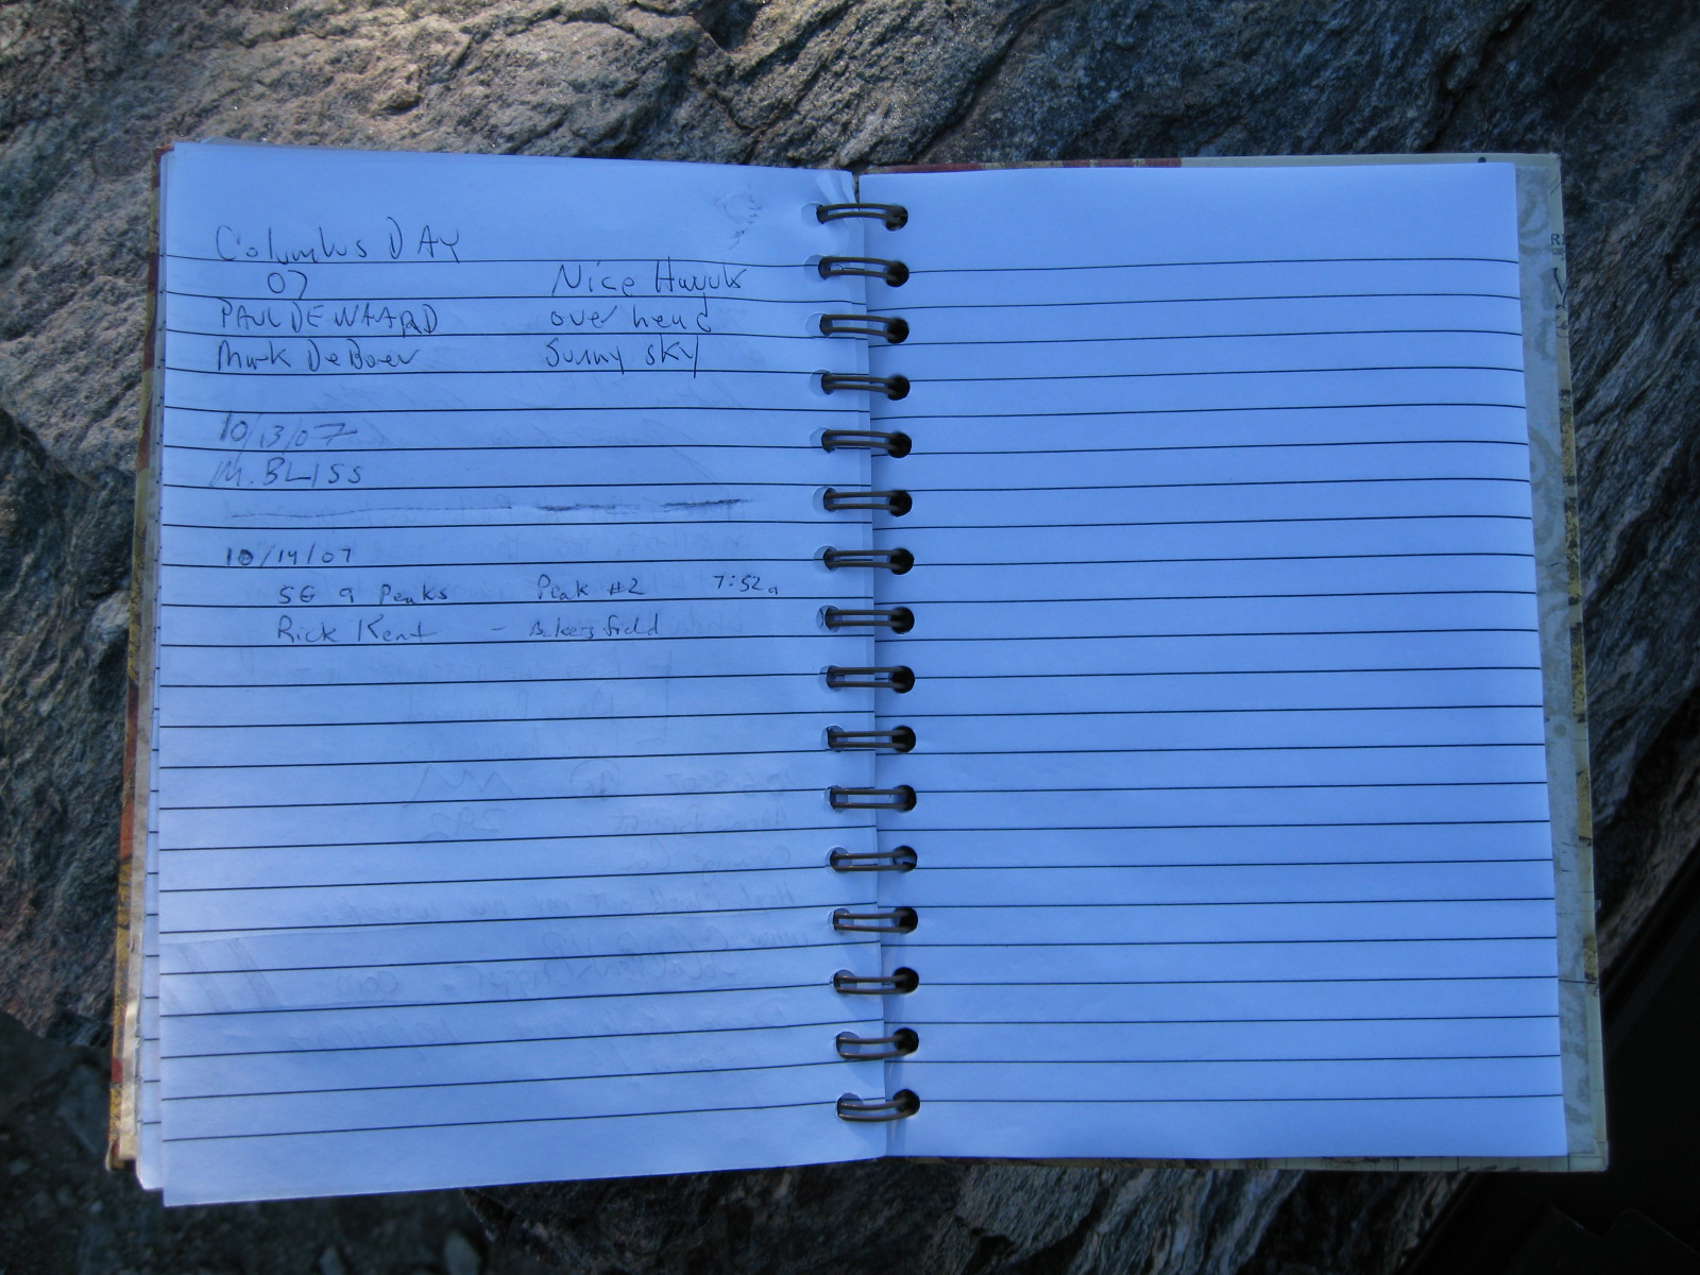 Columbus DAY
07 Nice
PAUL DE WAARD over head
Mark DeBoer Sunny sky
10/13/07
M. BLISS
10/14/07
SG 9 Peaks Peak #2 7:52a
Rick Kent - Bakersfield